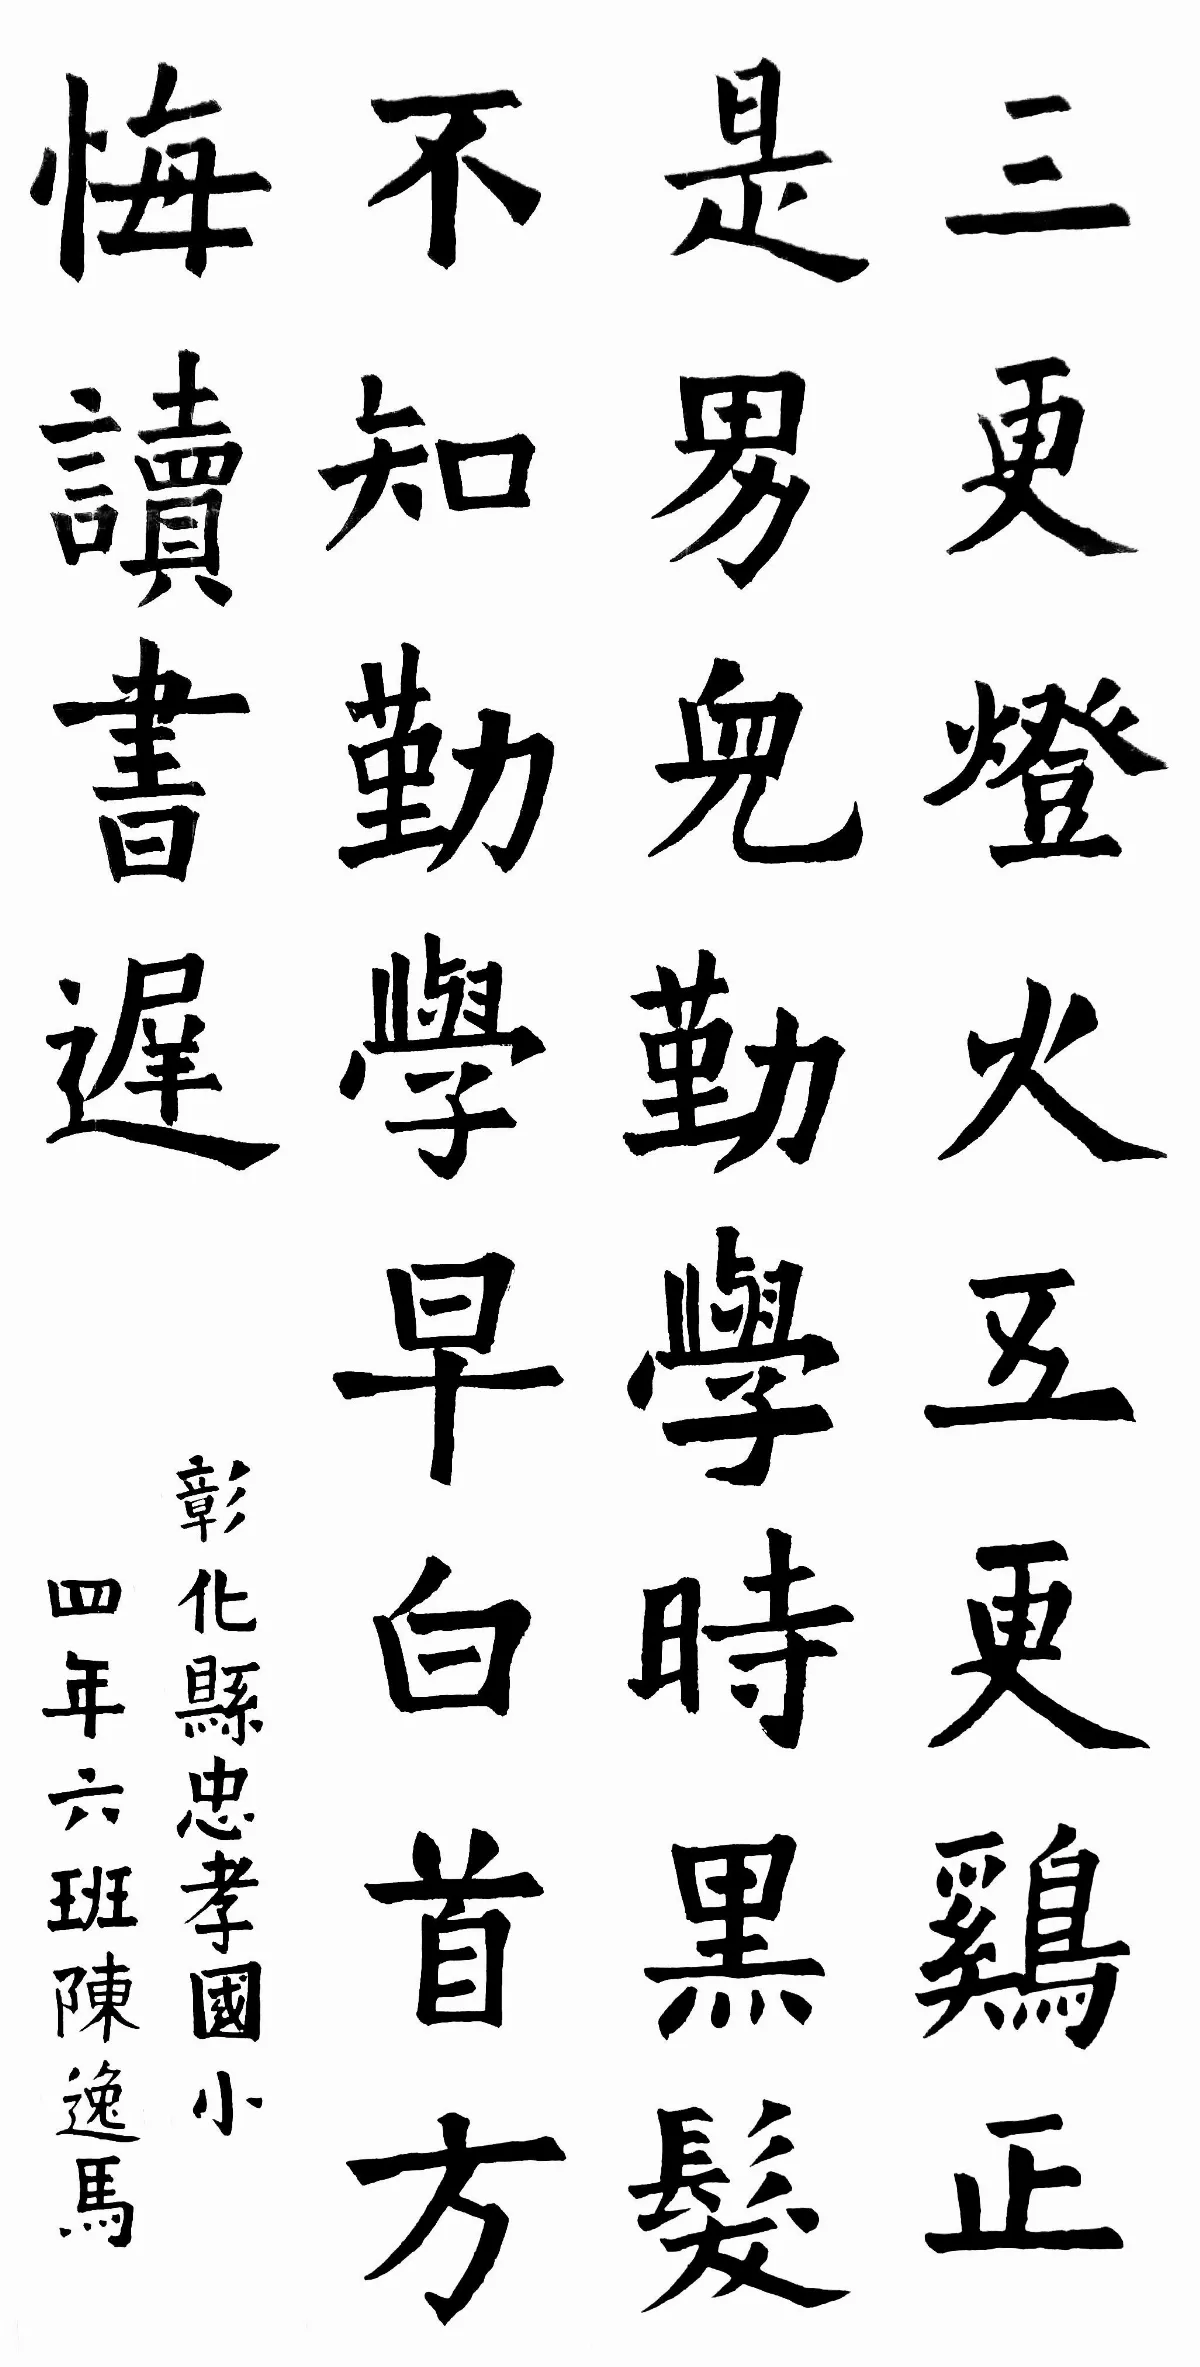 三更燈火五更鷄正
是男兒勤學時黑髮
不知勤學早白首方
悔讀書遲
彰化縣忠孝國小
四年六班陳逸馬